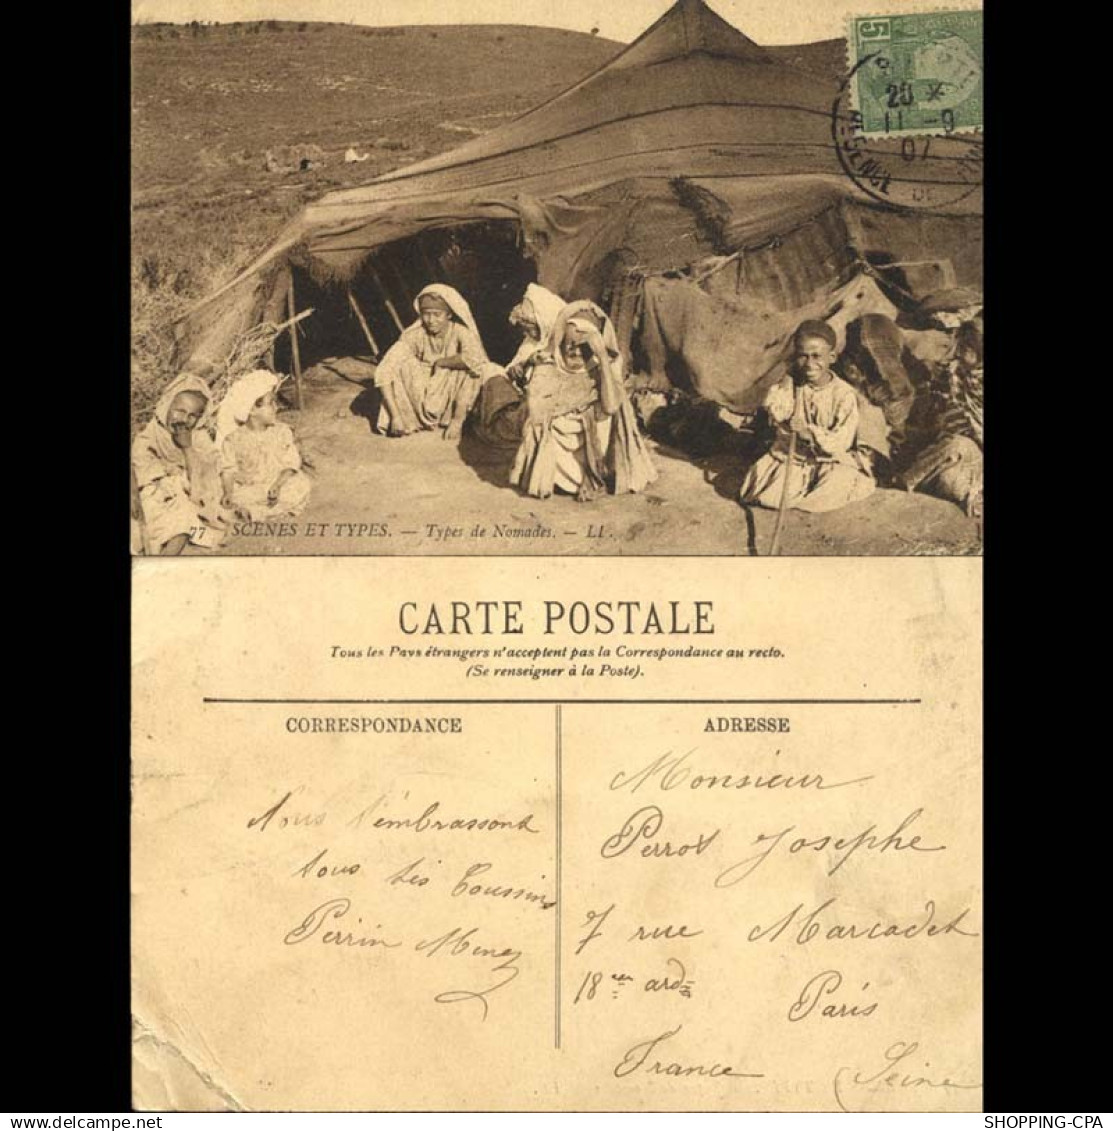 5
28 *
11 - 9
07
RÉGENCE DE
77 SCÈNES ET TYPES. — Types de Nomades. — LL.
CARTE POSTALE
Tous les Pays étrangers n'acceptent pas la Correspondance au recto.
(Se renseigner à la Poste).
CORRESPONDANCE
ADRESSE
Nous t'embrassons
tous tes Coussins
Perrin
Monsieur
Perrot Josephe
7 rue Marcadet
18em ard
Paris
France (Seine
SHOPPING-CPA